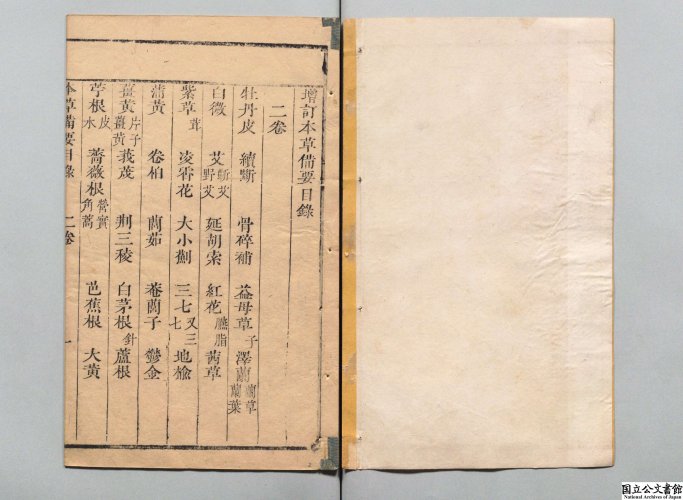 增訂本草備要目錄
二卷
牡丹皮 續斷 骨碎補 益母草子 澤蘭蘭草蘭葉
白薇 艾蘄艾野艾 延胡索 紅花臙脂 茜草
紫草茸 凌霄花 大小薊 三七又三七 地楡
蒲黃 卷柏 蘭茹 菴蘭子 鬱金
薑黃片子薑黃 莪茂 荆三稜 白茅根針 蘆根
苧根皮水 薔薇根營實角蒿 芭蕉根 大黃
本草備要目錄 二卷 一
国立公文書館
National Archives of Japan